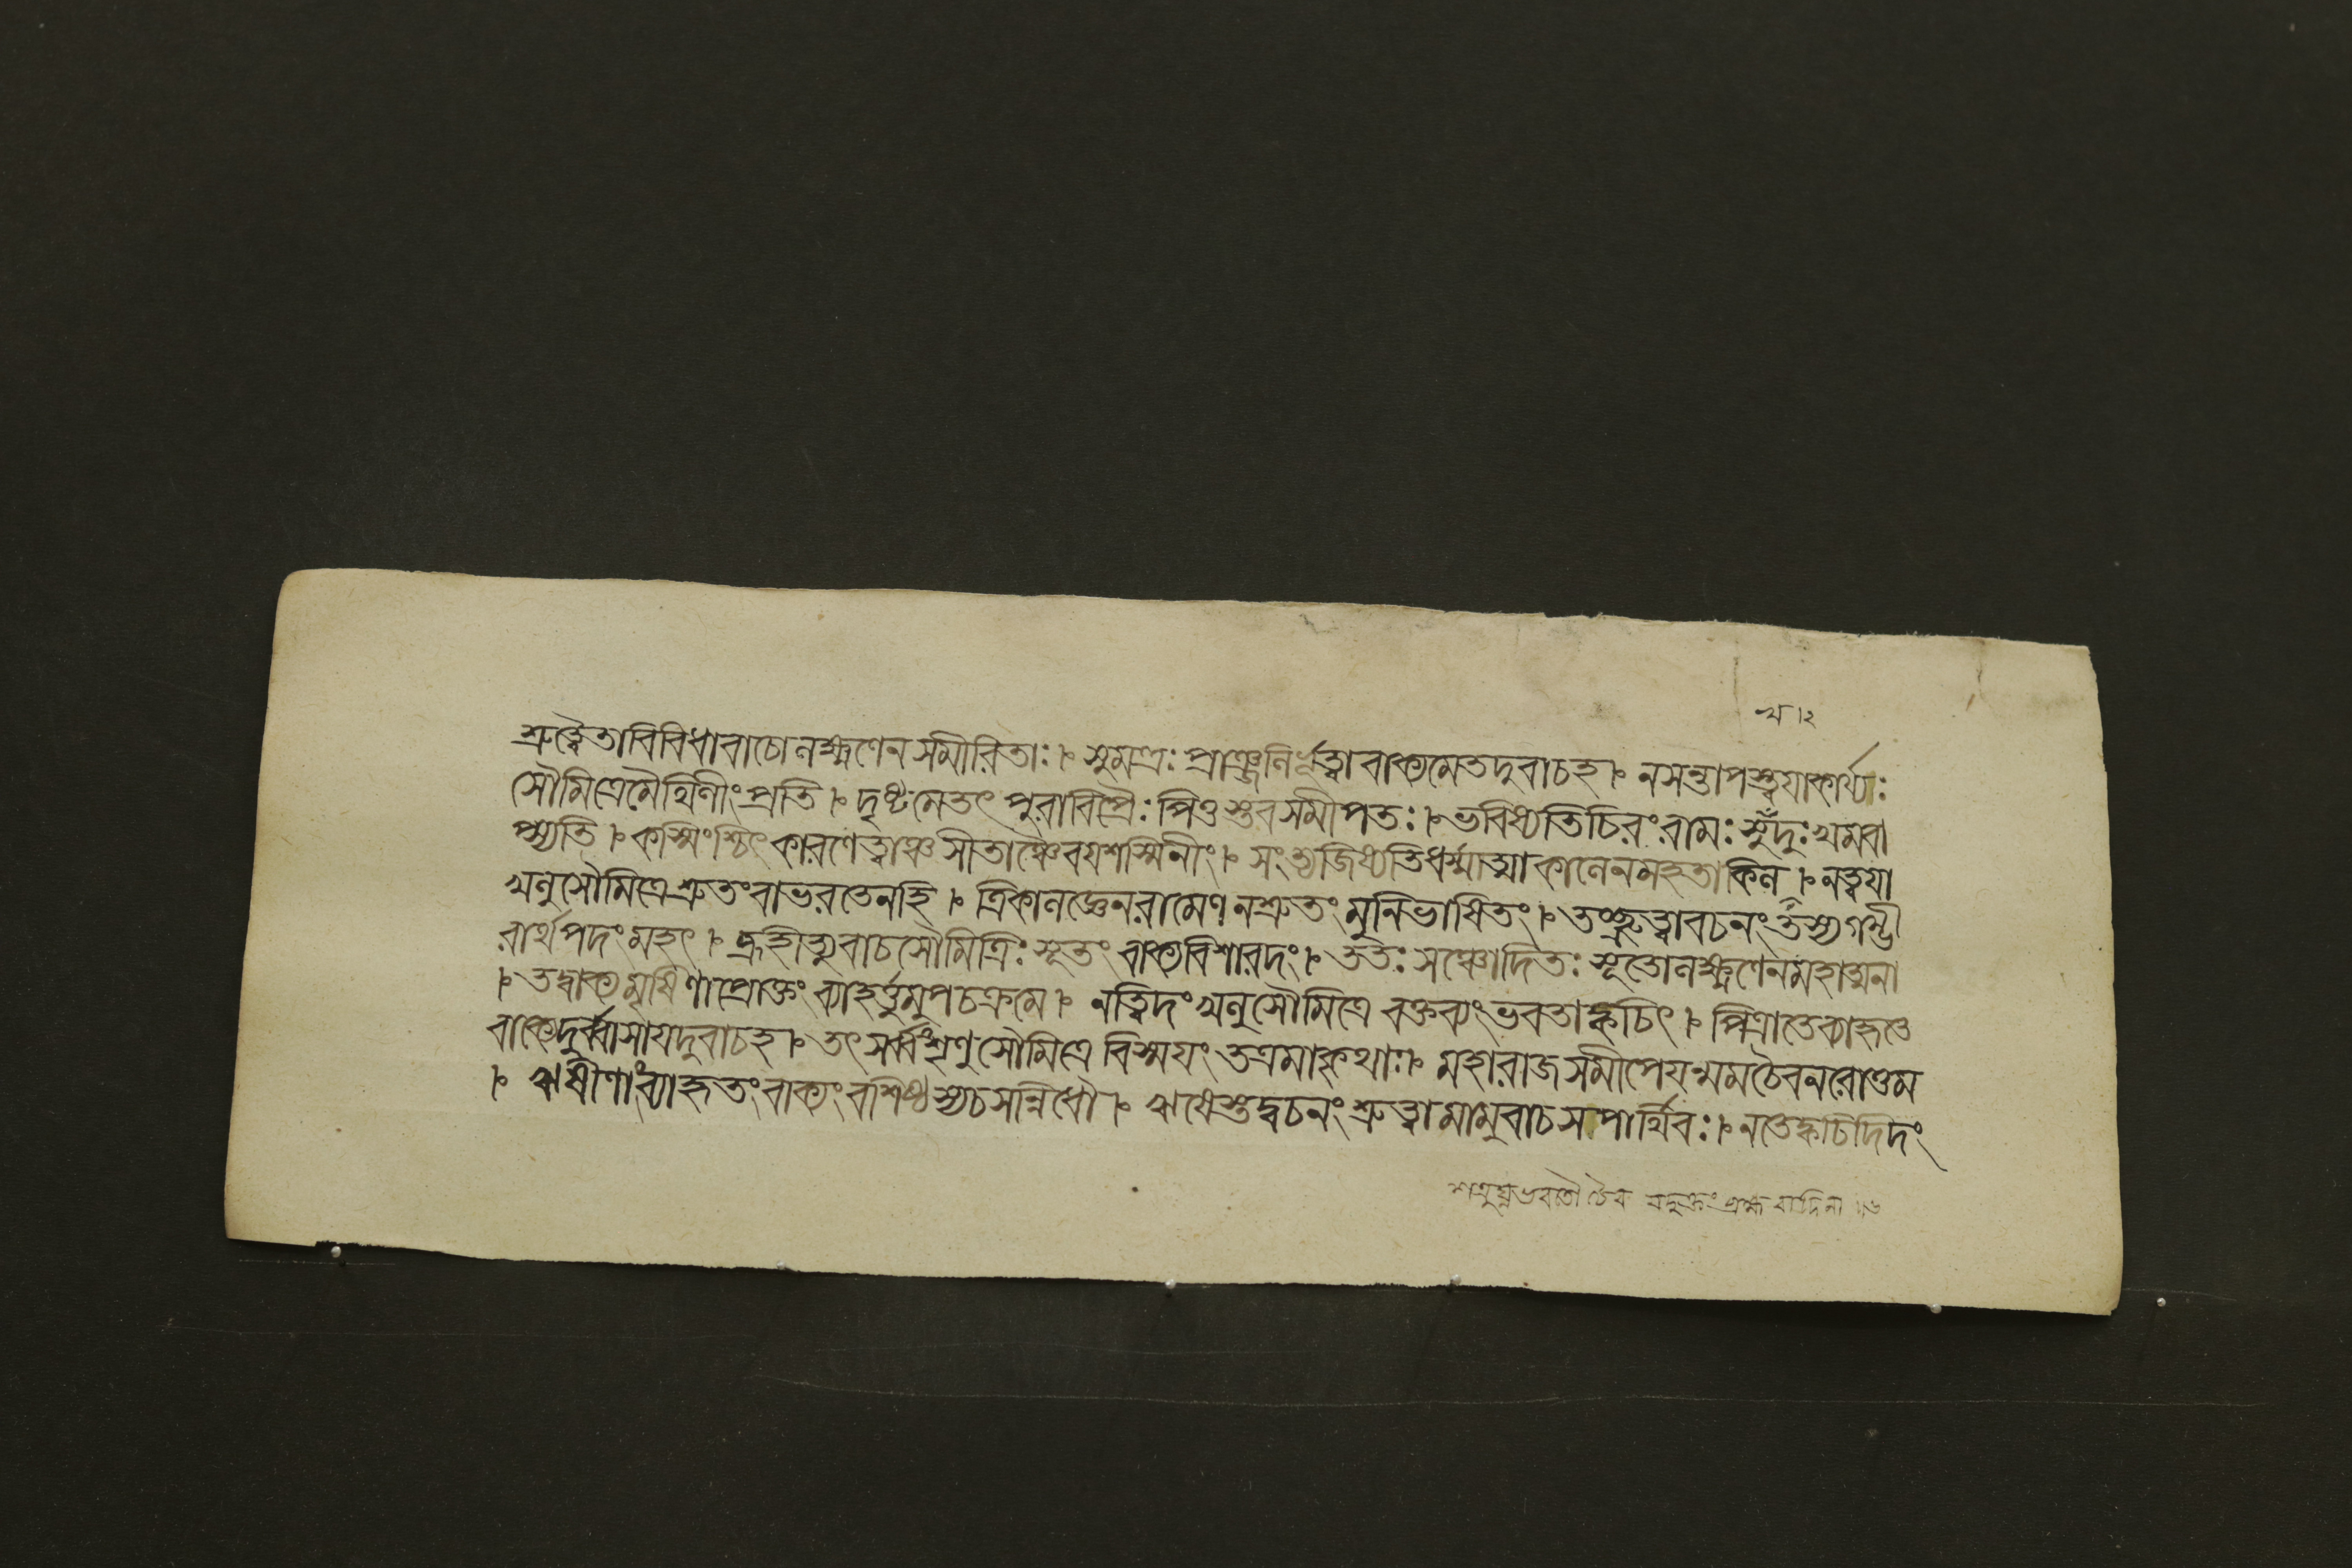 শ্রুত্বৈতা বিবিধা বাচো লক্ষ্মণেন সমীরিতাঃ । সুমন্ত্রঃ প্রাঞ্জলির্ভূত্বা বাক্যমেতদুবাচহ । নসন্তাপস্ত্বয়াকার্য্যঃ
সৌমিত্রেমৈথিলীংপ্রতি । দৃষ্টমেতৎ পুরাবিপ্রৈঃ পিতুস্তবসমীপতঃ । ভবিষ্যতিচিরংরামঃ সুদুঃখমবা
প্স্যতি । কস্মিংশ্চিৎ কারণেত্বাঞ্চসীতাঞ্চৈবযশস্বিনীং । সংত্যজিষ্যতিধর্ম্মাত্মাকালেনমহতাকিল । নত্বয়া
খলুসৌমিত্রেশ্রুতংবাভরতেনহি । ত্রিকালজ্ঞেনরামেণনশ্রুতংমুনিভাষিতং । তচ্ছ্রুত্বাবচনংতস্যগম্ভী
রার্থপদংমহৎ । ব্রূহীত্যুবাচসৌমিত্রিঃ সূতং বাক্যবিশারদং । ততঃ সঞ্চোদিতঃ সূতোলক্ষ্মণেনমহাত্মনা
। তদ্বাক্যমৃষিণাপ্রোক্তং ব্যাহর্ত্তুমুপচক্রমে । নত্বিদংখলুসৌমিত্রে বক্তব্যংভবতাক্বচিৎ । পিত্রাতেব্যাহৃতে
বাক্যেদুর্ব্বাসাযদুবাচহ । তৎ সর্ব্বংশৃণুসৌমিত্রে বিস্ময়ং তত্রমাকৃথাঃ । মহারাজসমীপেযন্মমচৈবনরোত্তম
। ঋষীণাংব্যাহৃতংবাক্যংবশিষ্ঠস্যচসন্নিধৌ । ঋষেস্তদ্বচনংশ্রুত্বামামুবাচসপার্থিবঃ । নতেক্বচিদিদং
শত্রুঘ্নভরতৌ চৈব যদুক্তং ব্রহ্মবাদিনা ॥৬